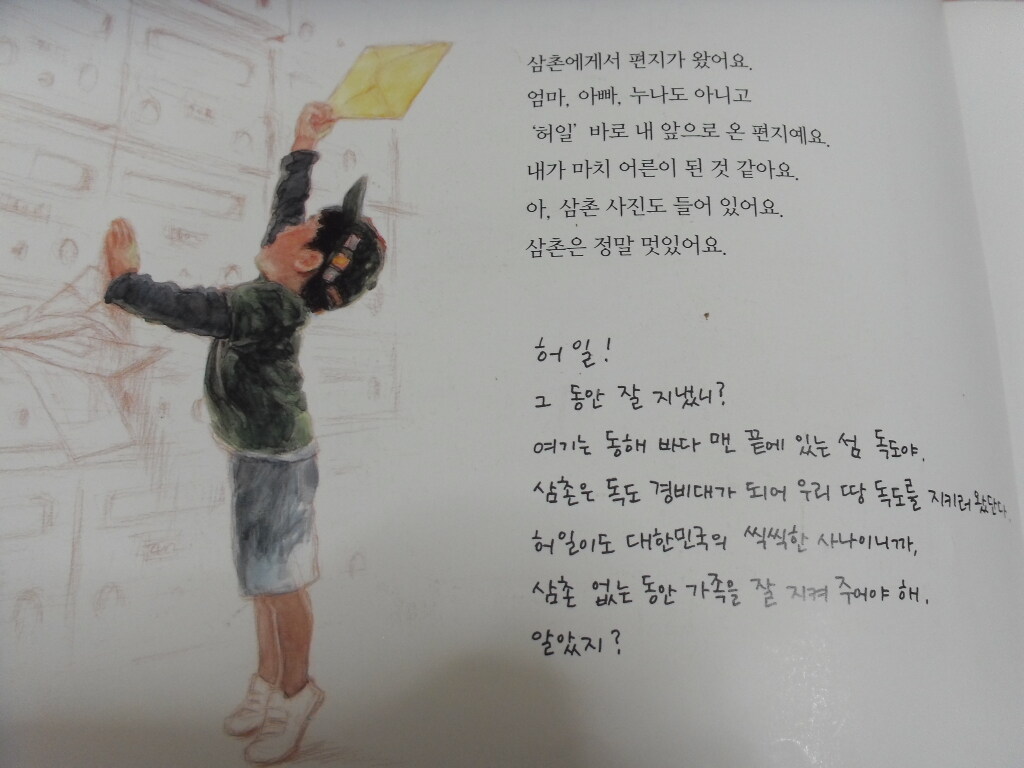 삼촌에게서 편지가 왔어요.
엄마, 아빠, 누나도 아니고
‘허일’ 바로 내 앞으로 온 편지예요.
내가 마치 어른이 된 것 같아요.
아, 삼촌 사진도 들어 있어요.
삼촌은 정말 멋있어요.
허일!
그 동안 잘 지냈니?
여기는 동해 바다 맨 끝에 있는 섬 독도야.
삼촌은 독도 경비대가 되어 우리 땅 독도를 지키러 왔단다.
허일이도 대한민국의 씩씩한 사나이니까,
삼촌 없는 동안 가족을 잘 지켜 주어야 해.
알았지?